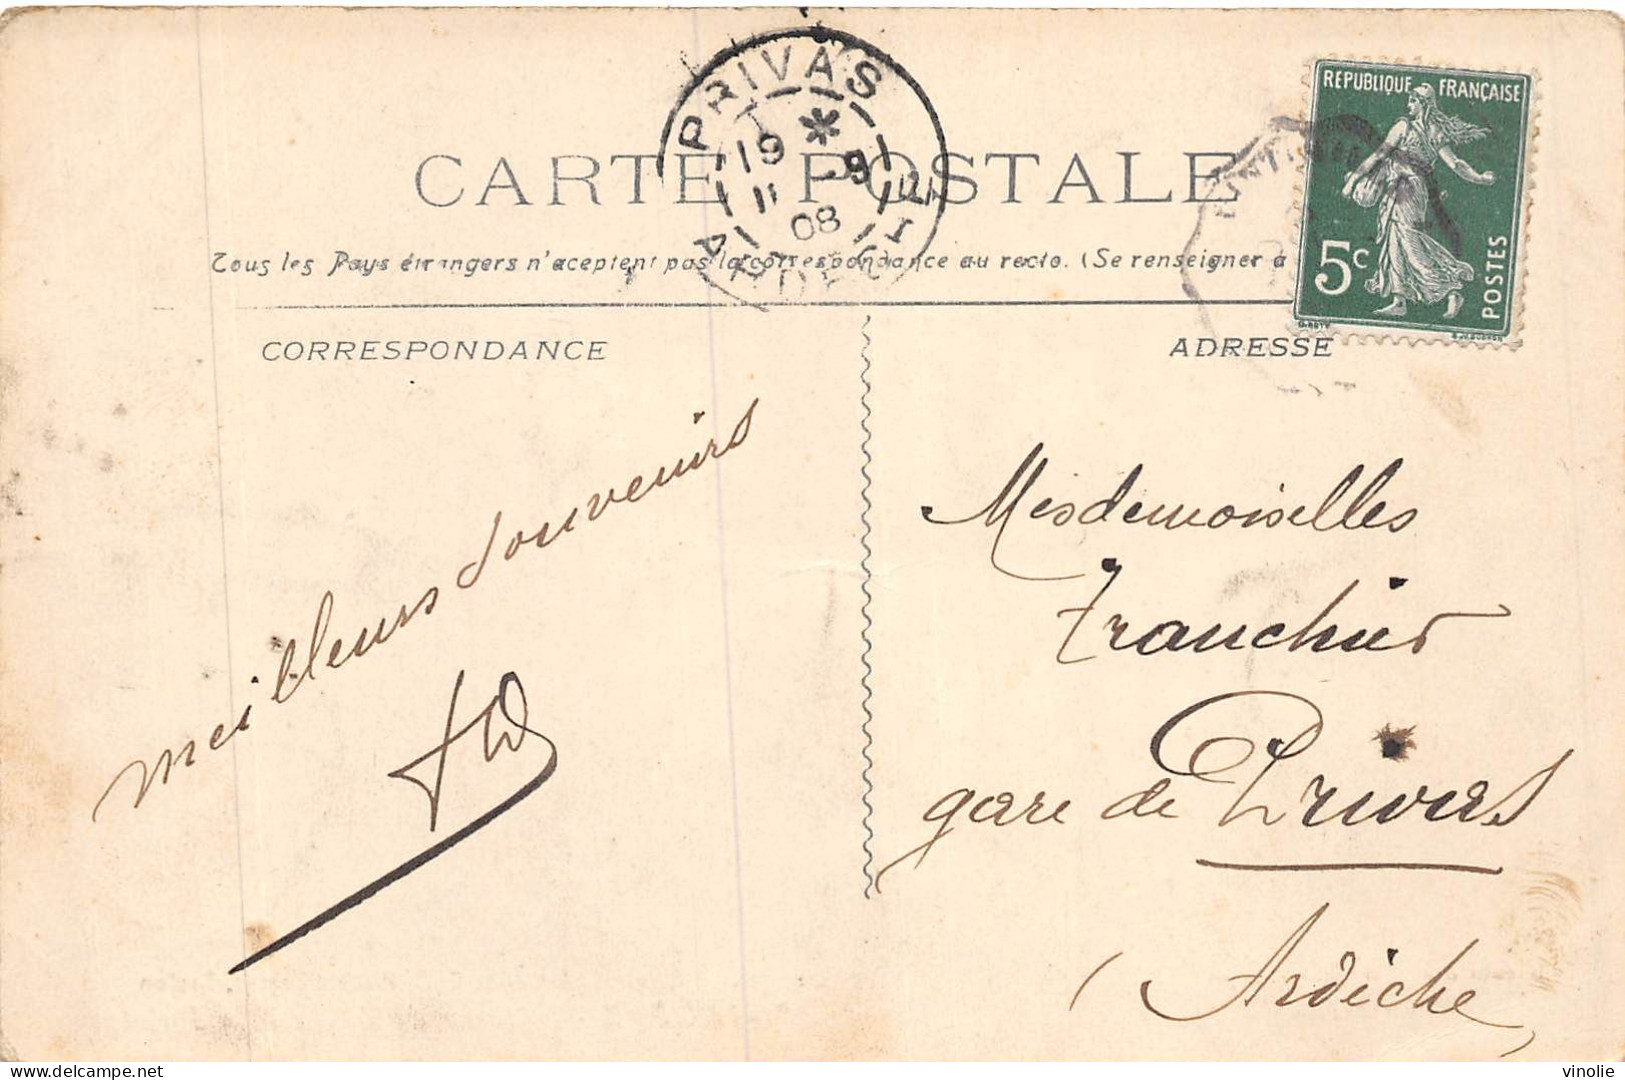 PRIVAS
19 *
11 -9
08
ARDECHE
REPUBLIQUE FRANÇAISE
5c
POSTES
CARTE POSTALE
Tous les Pays étrangers n'aceptent pas la correspondance au recto. (Se renseigner à
CORRESPONDANCE
ADRESSE
meilleurs souvenirs
Mesdemoiselles
Tranchier
gare de Privas
(Ardèche)
delcampe.net
vinolie